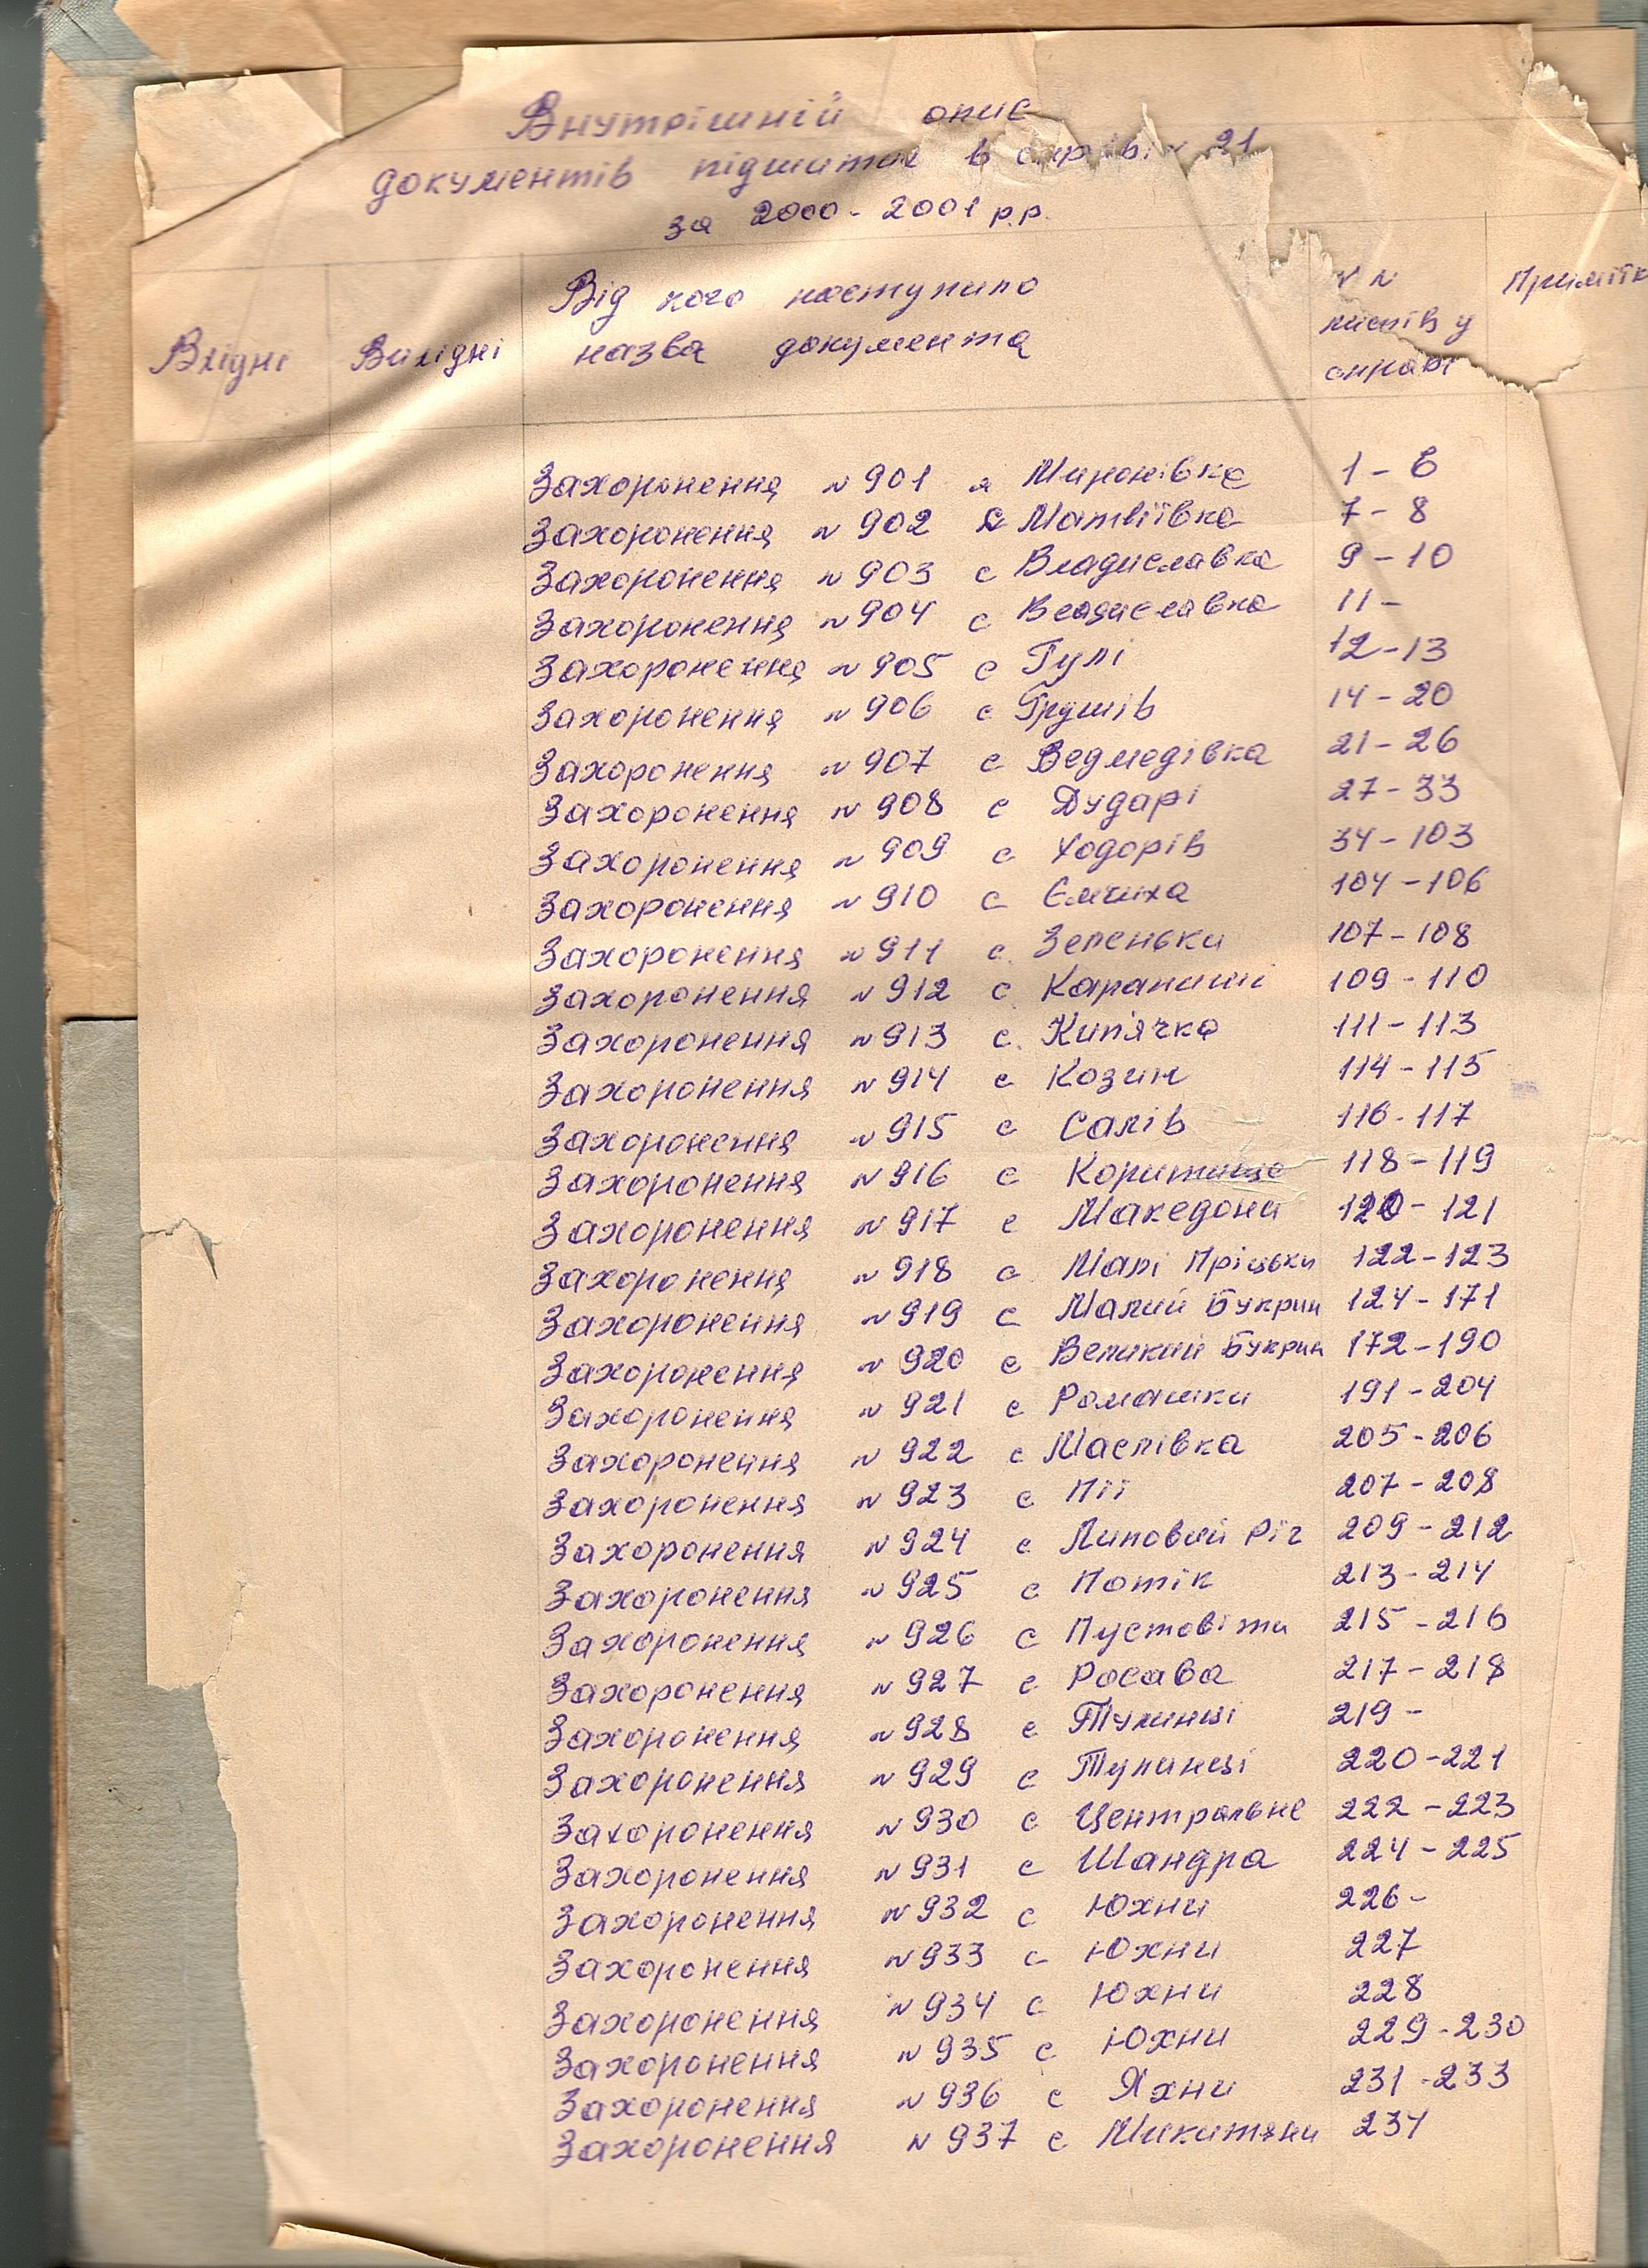 Внутрішній опис
документів підшитих в справі № 21
за 2000-2001 р.р.
Вхідні Вихідні Від кого наступило назва документа №№ листів у справі Примітк
Захоронення №901 м Миронівка 1-6
Захоронення №902 с Матвіївка 7-8
Захоронення №903 с Владиславка 9-10
Захоронення №904 с Владиславка 11-
Захоронення №905 с Гулі 12-13
Захоронення №906 с Грушів 14-20
Захоронення №907 с Ведмедівка 21-26
Захоронення №908 с Дударі 27-33
Захоронення №909 с Ходорів 34-103
Захоронення №910 с Ємчиха 104-106
Захоронення №911 с. Зеленьки 107-108
Захоронення №912 с. Карапиші 109-110
Захоронення №913 с. Кип'ячка 111-113
Захоронення №914 с Козин 114-115
Захоронення №915 с Салів 116-117
Захоронення №916 с Коритище 118-119
Захоронення №917 с Македони 120-121
Захоронення №918 с. Малі Прицьки 122-123
Захоронення №919 с Малий Букрин 124-171
Захоронення №920 с Великий Букрин 172-190
Захоронення №921 с Ромашки 191-204
Захоронення №922 с Маслівка 205-206
Захоронення №923 с Пії 207-208
Захоронення №924 с Липовий Ріг 209-212
Захоронення №925 с Потік 213-214
Захоронення №926 с Пустовіти 215-216
Захоронення №927 с Росава 217-218
Захоронення №928 с Тулинці 219-
Захоронення №929 с Тулинці 220-221
Захоронення №930 с Центральне 222-223
Захоронення №931 с Шандра 224-225
Захоронення №932 с Юхни 226-
Захоронення №933 с Юхни 227
Захоронення №934 с Юхни 228
Захоронення №935 с Юхни 229-230
Захоронення №936 с Яхни 231-233
Захоронення №937 с Микитяни 234